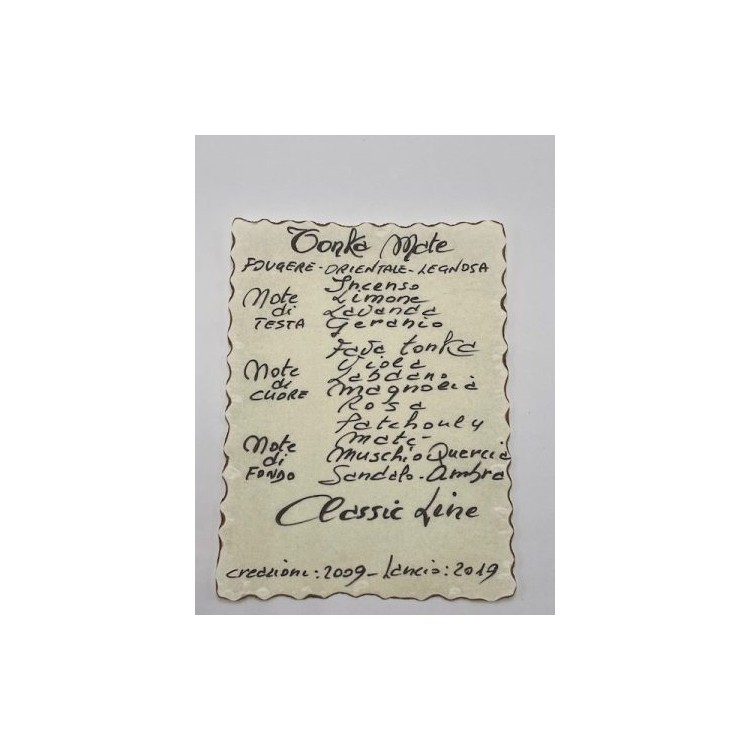 Tonka Mate
FOUGERE-ORIENTALE-LEGNOSA
Note di TESTA
Incenso
Limone
Lavanda
Geranio
Note di CUORE
Fava tonka
Viola
Labdano
Magnolia
Rosa
Note di FONDO
Patchouly
Mate-
Muschio Quercia
Sandalo-Ambra
Classic Line
creazione:2009-Lancio:2019